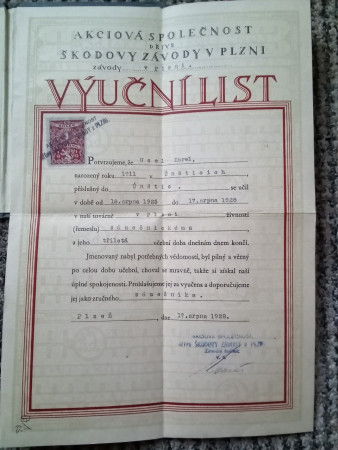 AKCIOVÁ SPOLEČNOST
DŘÍVE
ŠKODOVY ZÁVODY V PLZNI
závody v Plzni.
VÝUČNÍ LIST
Potvrzujeme, že Karel,
narozený roku 1911 v
příslušný do se učil
v době od 18.srpna 1925 do 17.srpna 1928
v naší továrně v Plzni živnosti
(řemeslu) zámečnickému
a jeho tříletá učební doba dnešním dnem končí.
Jmenovaný nabyl potřebných vědomostí, byl pilný a věrný
po celou dobu učební, choval se mravně, takže si získal naši
úplné spokojenosti. Prohlašujeme jej za vyučena a doporučujeme
jej jako zručného zámečníka.
Plzeň, dne 17.srpna 1928.
AKCIOVÁ SPOLEČNOST
dříve ŠKODOVY ZÁVODY v PLZNI